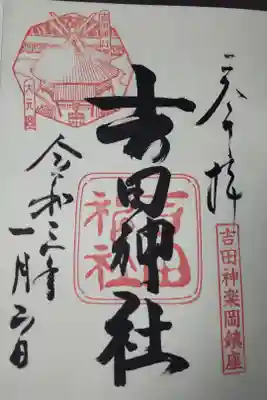 奉拝
吉田神楽岡鎮座
吉田神社
吉田神社
令和三年
一月二日